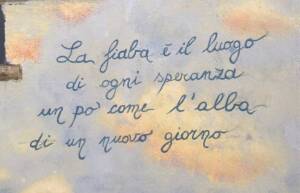 La fiaba è il luogo
di ogni speranza
un po come l'alba
di un nuovo giorno